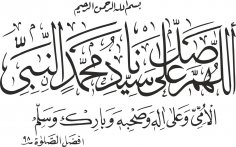 بسم الله الرحمن الرحيم
اللهم صل على سيدنا محمد النبي
الأمي وعلى آله وصحبه وبارك وسلم
افضل الصلوة ٩٨